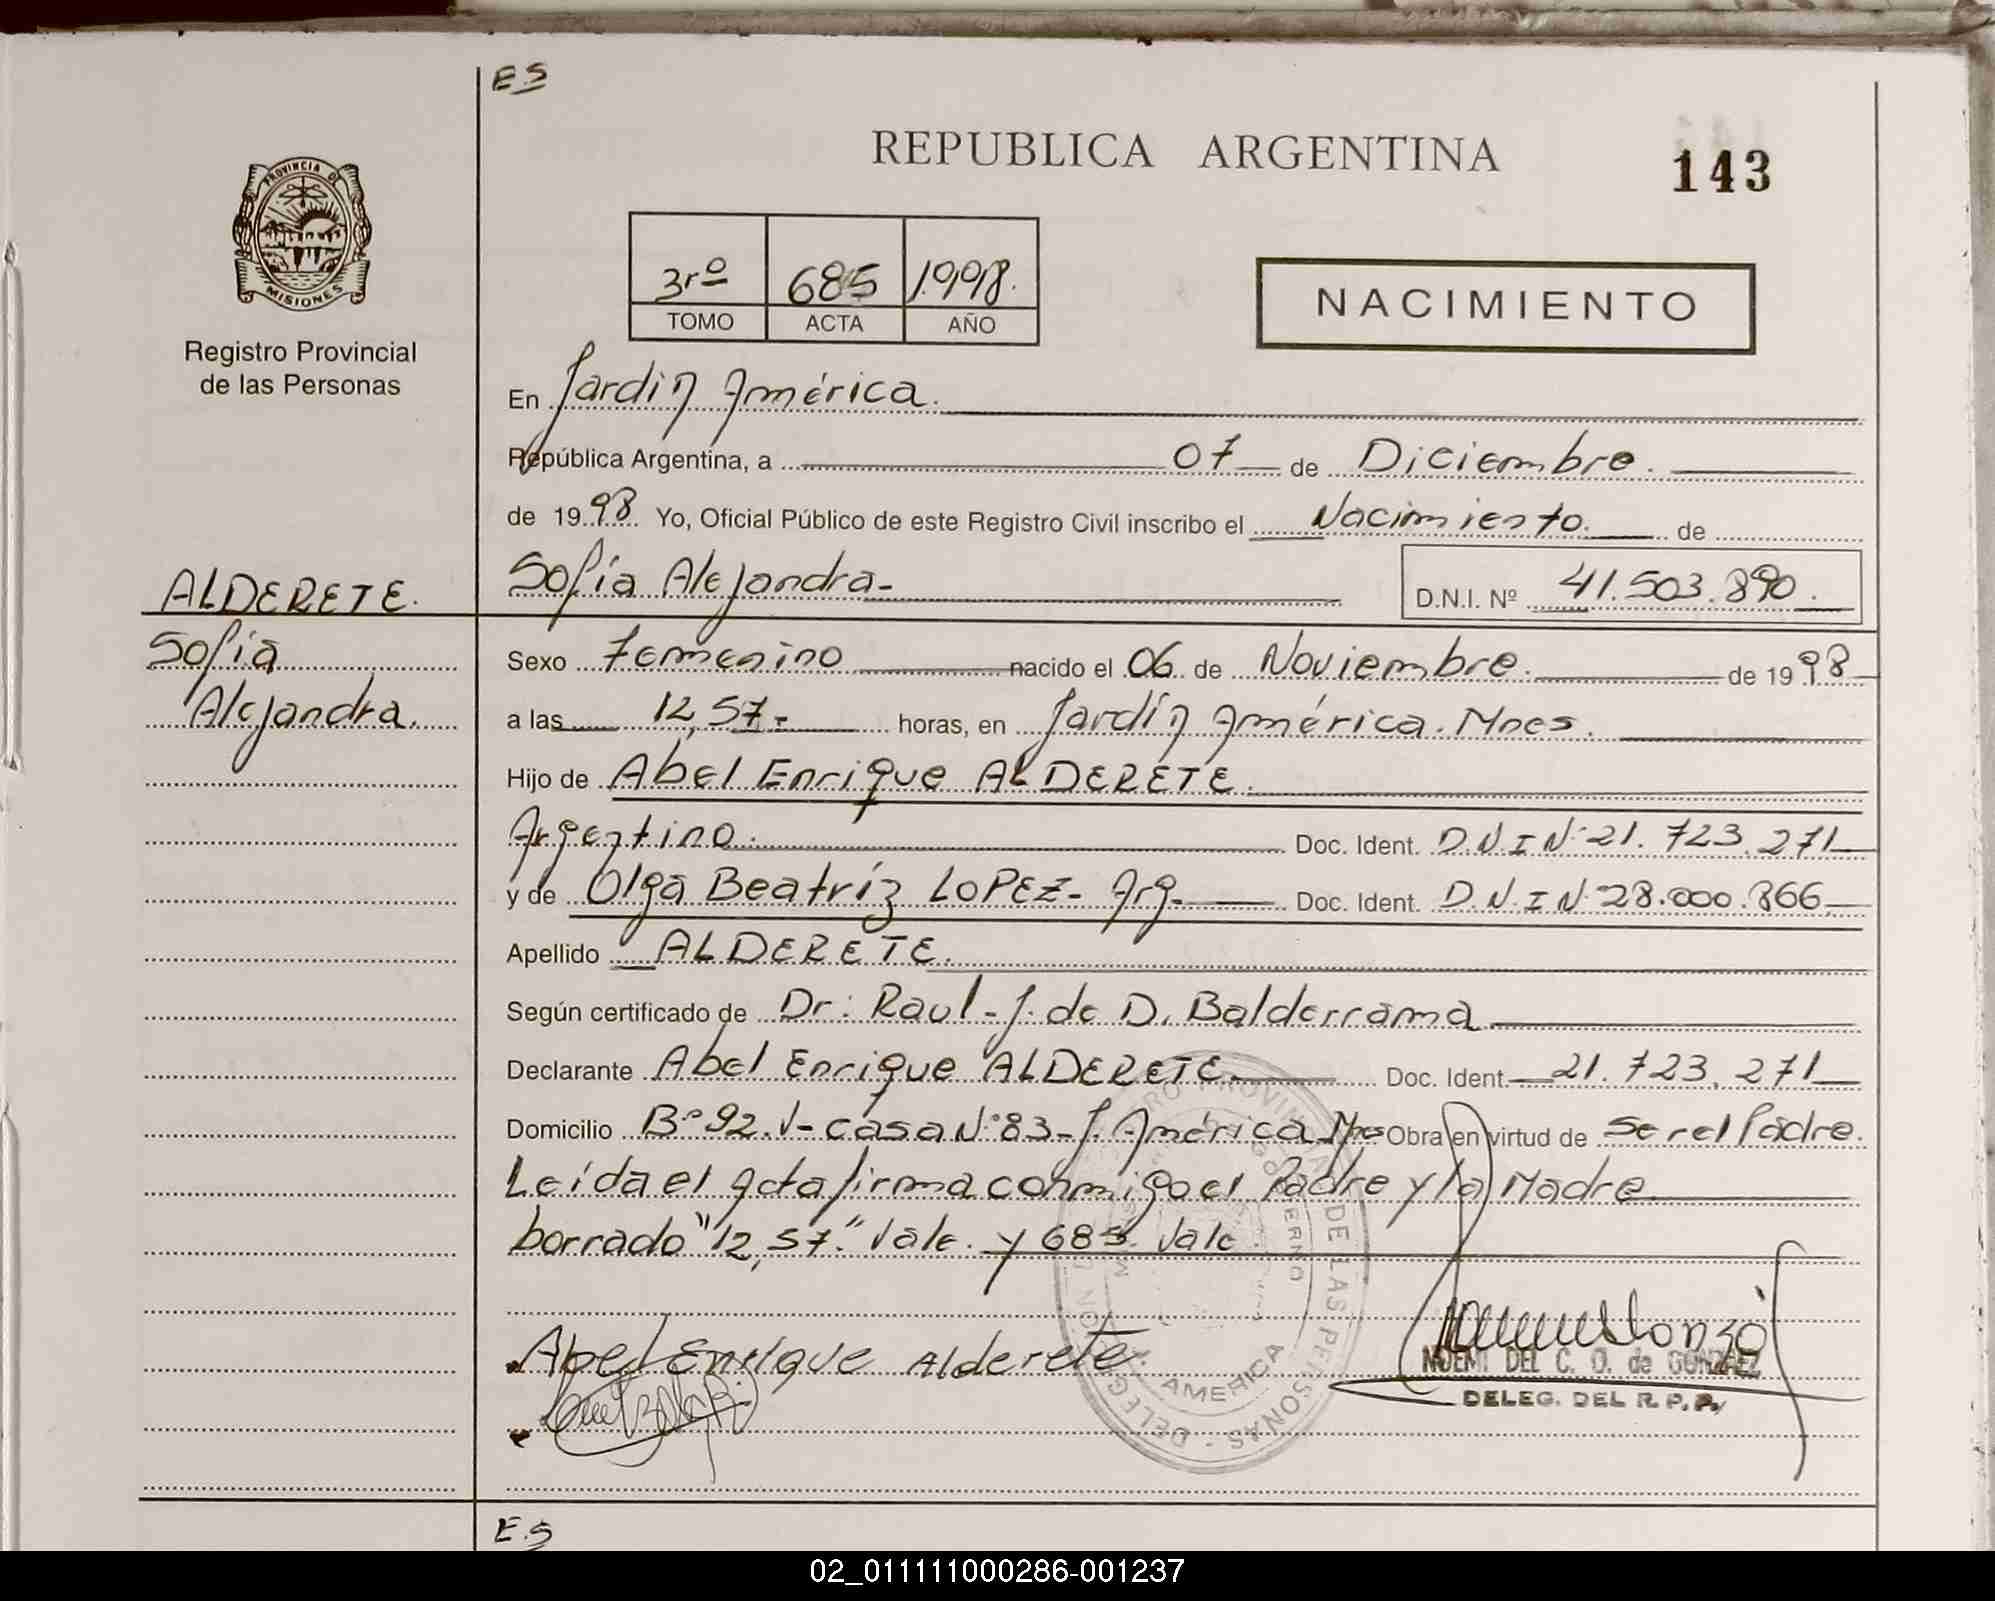 E.S
REPUBLICA ARGENTINA
143
PROVINCIA DE
MISIONES
Registro Provincial
de las Personas
3ro 685 1998.
TOMO ACTA AÑO
NACIMIENTO
En Jardín América.
República Argentina, a 07 de Diciembre.
de 1998 Yo, Oficial Público de este Registro Civil inscribo el Nacimiento. de
ALDERETE.
Sofía Alejandra-
D.N.I. Nº 41.503.890.
Sofía
Alejandra.
Sexo Femenino nacido el 06 de Noviembre. de 1998
a las 12,57- horas, en Jardín América. Mnes.
Hijo de Abel Enrique ALDERETE.
Argentino. Doc. Ident. D.N.I Nº 21.723.271
y de Olga Beatríz LOPEZ- Arg. Doc. Ident. D.N.I Nº 28.000.866
Apellido ALDERETE.
Según certificado de Dr: Raul-J. de D. Balderrama
Declarante Abel Enrique ALDERETE. Doc. Ident. 21.723.271
Domicilio Bº 92.V- casa Nº 83-J. América Mnes Obra en virtud de ser el Padre.
Leída el acta firma conmigo el Padre y la Madre
borrado "12,57." Vale. y 685. Vale.
Abel Enrique Alderete
NOEMI DEL C. O. de GONZALEZ
DELEG. DEL R.P.P.
AMERICA
E.S
02_011111000286-001237